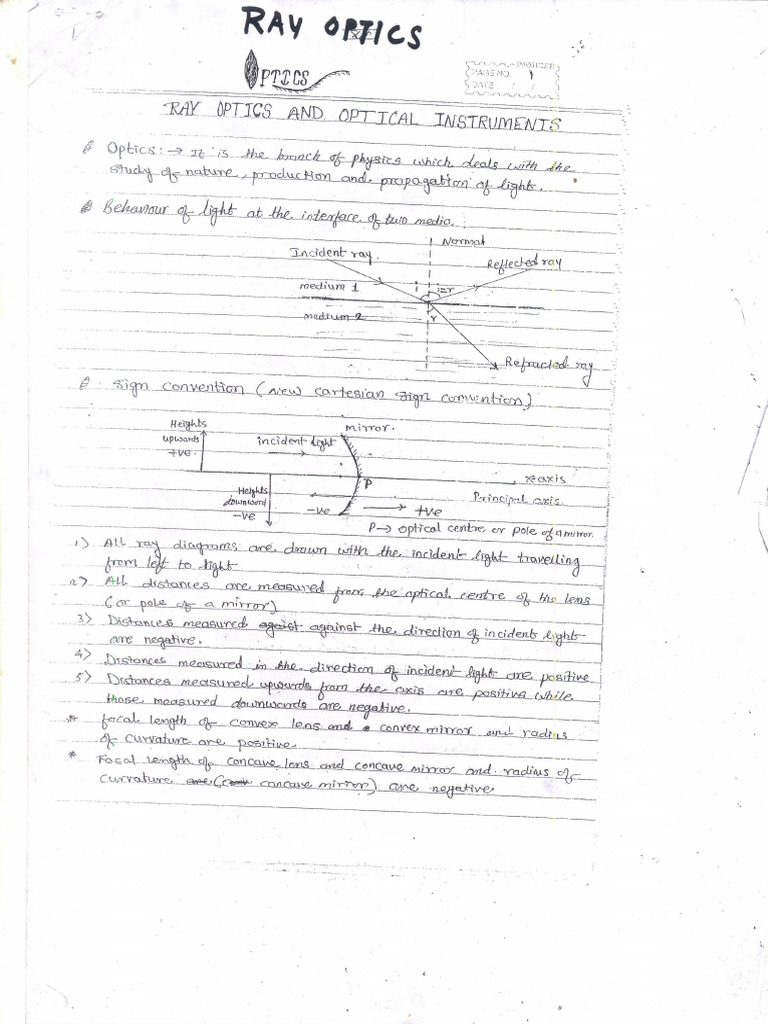 RAY OPTICS
OPTICS
PAGE NO. 1
DATE
RAY OPTICS AND OPTICAL INSTRUMENTS
Optics:→ It is the branch of physics which deals with the
study of nature, production and propagation of light.
Behaviour of light at the interface of two media.
Normal
Incident ray.
Reflected ray
medium 1
i
i=r
medium 2
r
Refracted ray
Sign convention (New Cartesian Sign convention)
Heights
upwards
+ve
incident light
mirror.
P
x-axis
Principal axis
Heights
downward
-ve
-ve
+ve
P→ optical centre or pole of a mirror.
1) All ray diagrams are drawn with the incident light travelling
from left to light
2) All distances are measured from the optical centre of the lens
(or pole of a mirror)
3) Distances measured against the direction of incident light
are negative.
4) Distances measured in the direction of incident light are positive
5) Distances measured upwards from the axis are positive while
those measured downwards are negative.
* focal length of convex lens and convex mirror and radius
of curvature are positive.
* Focal length of concave lens and concave mirror and radius of
curvature (concave mirror) are negative